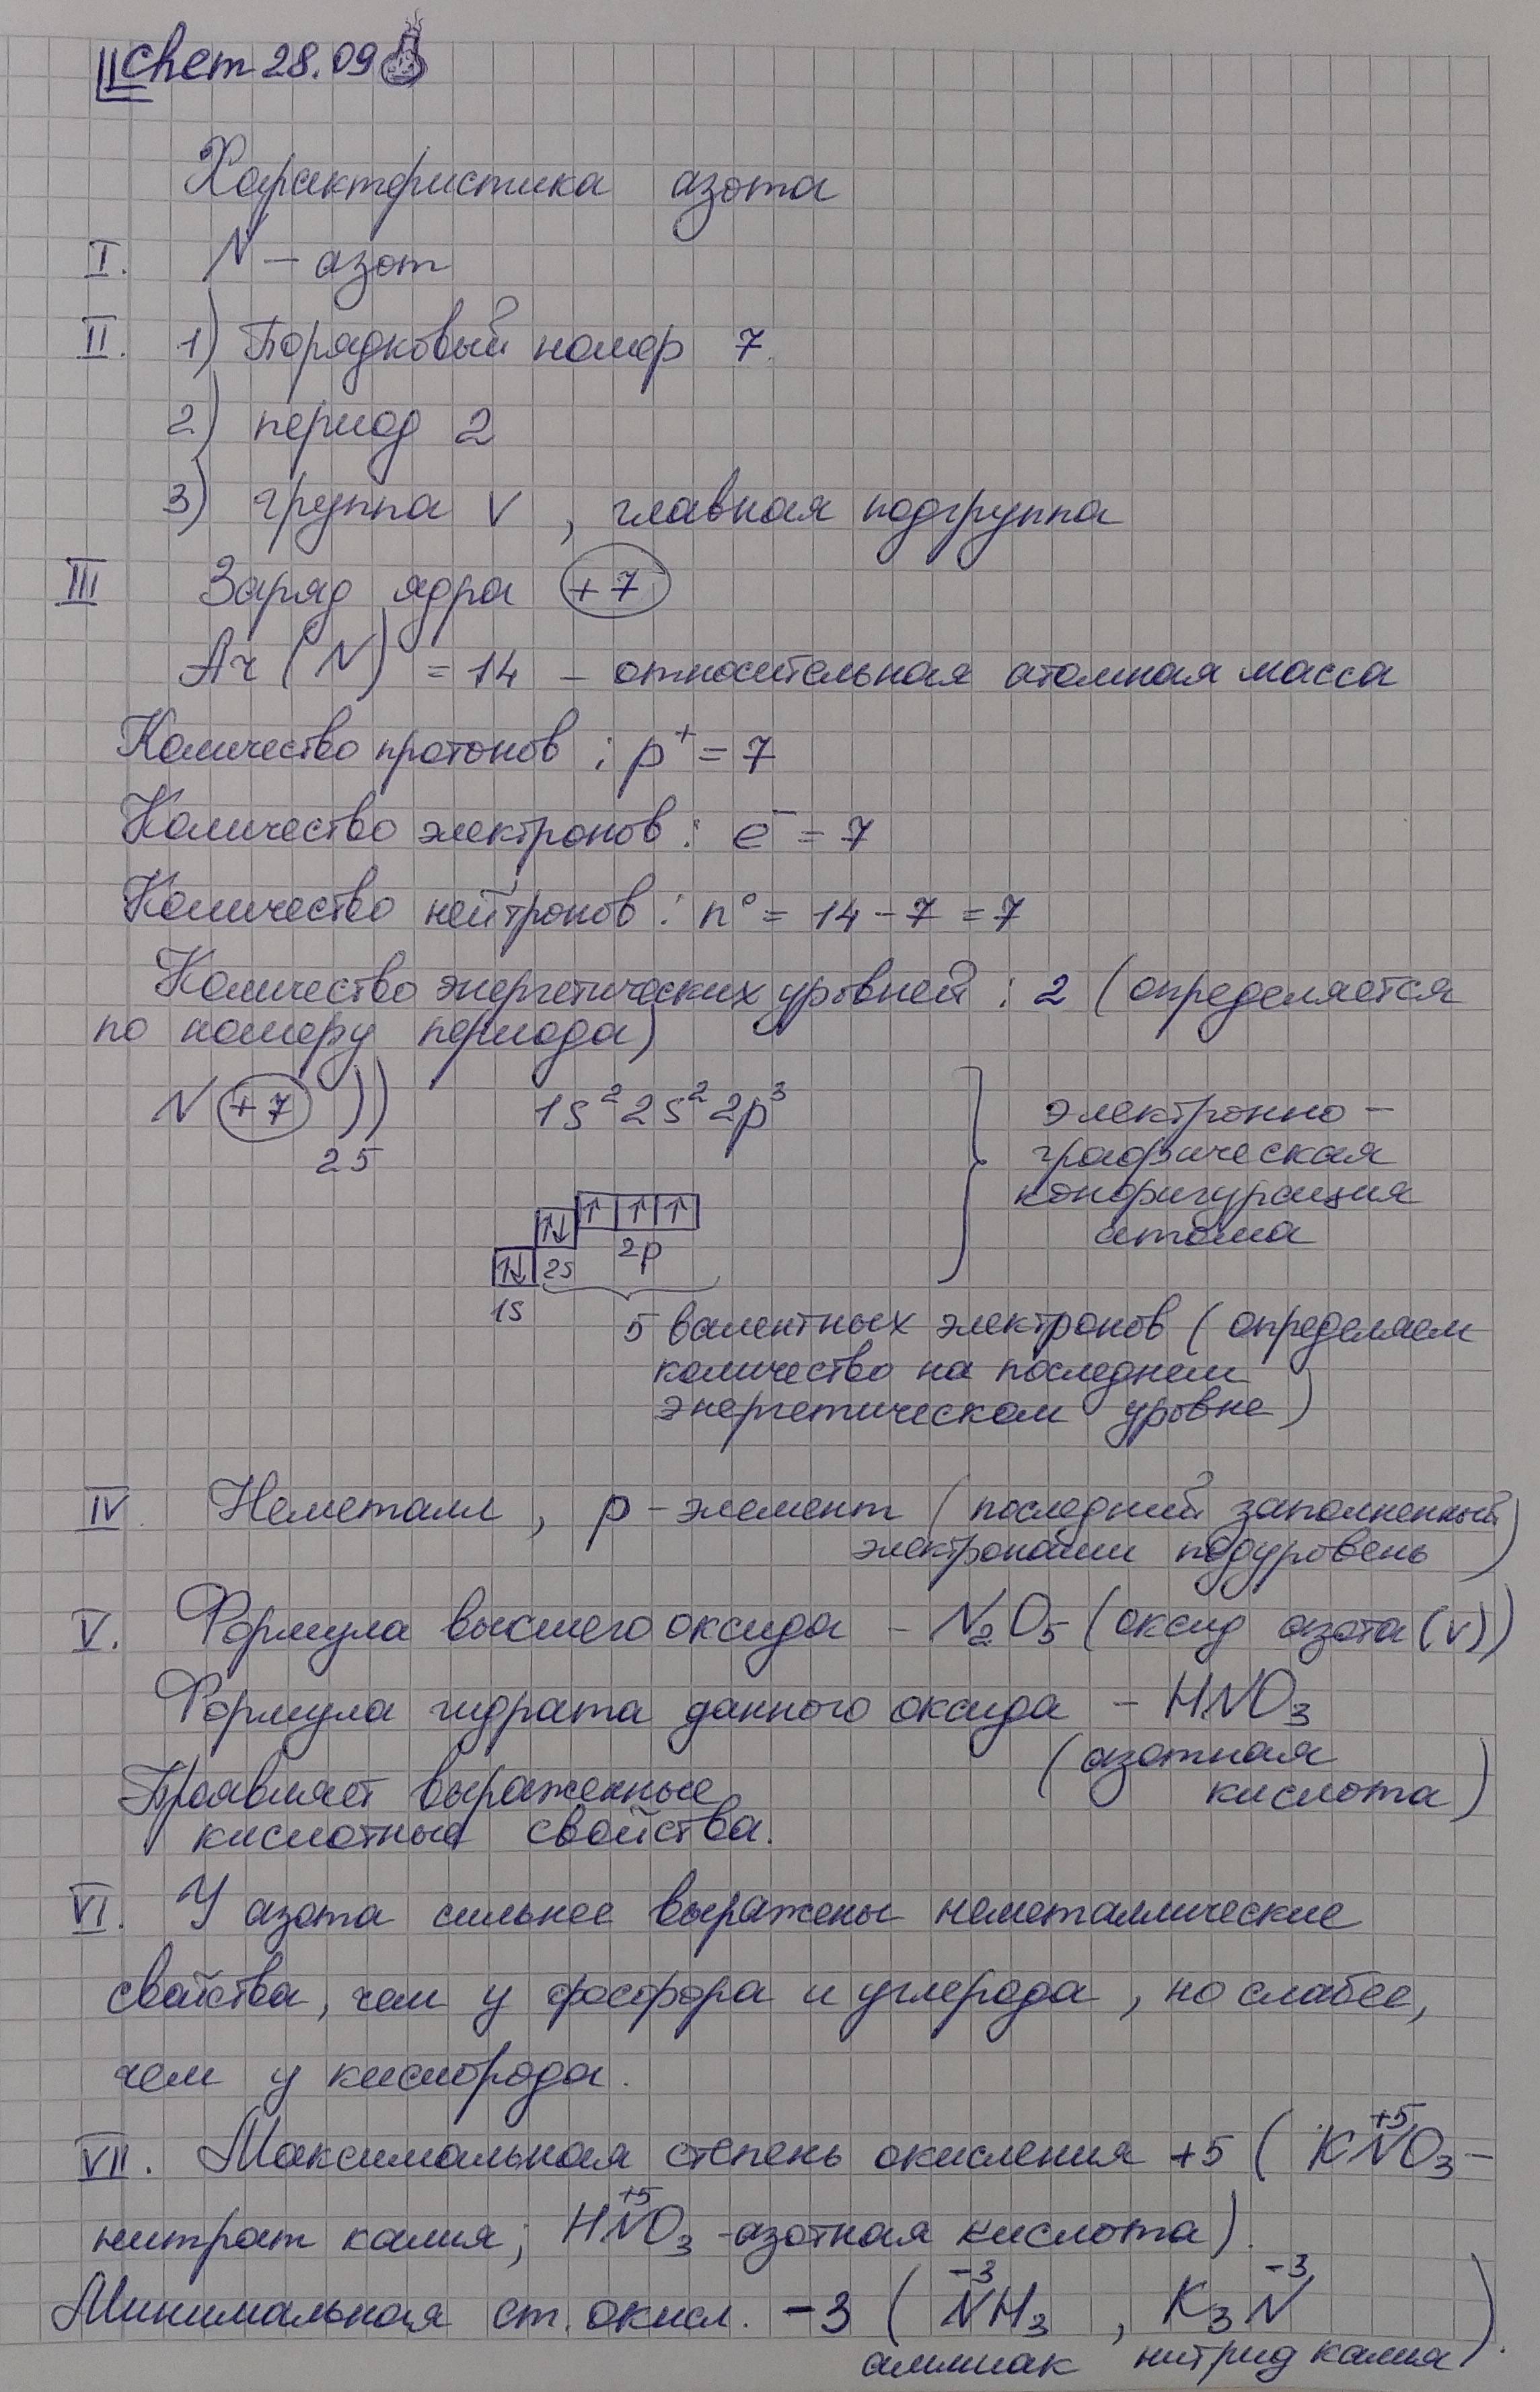 Chem 28.09
Характеристика азота
I. N – азот
II. 1) Порядковый номер 7.
2) период 2
3) группа V , главная подгруппа
III Заряд ядра +7
Ar (N) = 14 – относительная атомная масса
Количество протонов : p⁺ = 7
Количество электронов : e⁻ = 7
Количество нейтронов : n⁰ = 14 – 7 = 7
Количество энергетических уровней : 2 (определяется
по номеру периода)
N +7 )) 1s² 2s² 2p³
2 5
электронно –
графическая
конфигурация
атома
↑ ↑ ↑
↑↓ 2p
↑↓ 2s
1s
5 валентных электронов ( определяем
количество на последнем
энергетическом уровне )
IV. Неметалл , p – элемент ( последний заполненный
электронами подуровень )
V. Формула высшего оксида – N₂O₅ ( оксид азота (V))
Формула гидрата данного оксида – HNO₃
( азотная
кислота )
Проявляет выраженные
кислотные свойства.
VI. У азота сильнее выражены неметаллические
свойства, чем у фосфора и углерода , но слабее,
чем у кислорода.
VII. Максимальная степень окисления +5 ( KN⁺⁵O₃ –
нитрат калия; HN⁺⁵O₃ - азотная кислота ).
Минимальная ст. окисл. –3 ( N⁻³H₃ , K₃N⁻³
аммиак нитрид калия ).